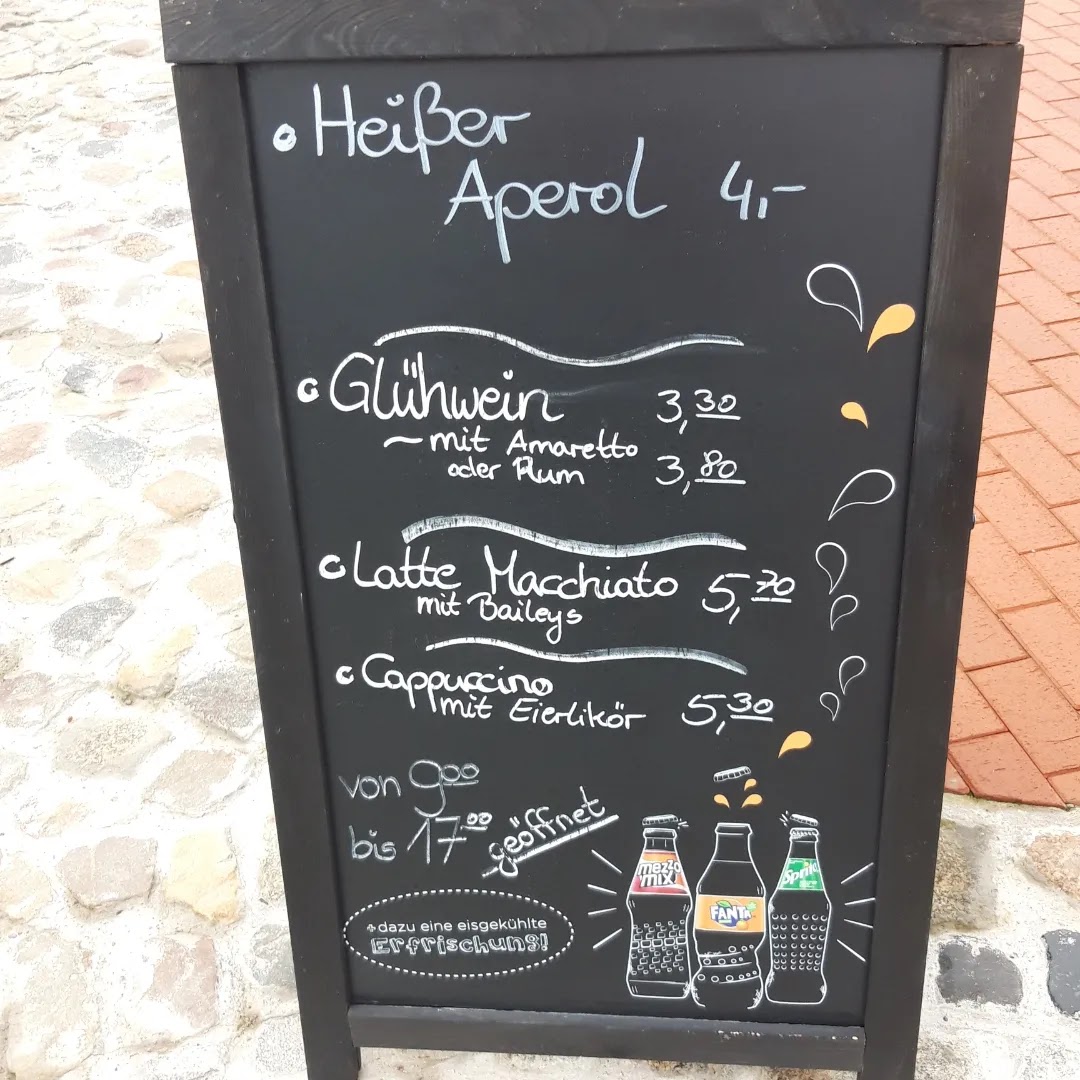 Heißer
Aperol 4,-
Glühwein 3,30
~ mit Amaretto
oder Rum 3,80
Latte Macchiato 5,70
mit Baileys
Cappuccino
mit Eierlikör 5,30
von 9 00
bis 17 00 geöffnet
+ dazu eine eisgekühlte
Erfrischung!
mezzo
mix
FANTA
Sprite